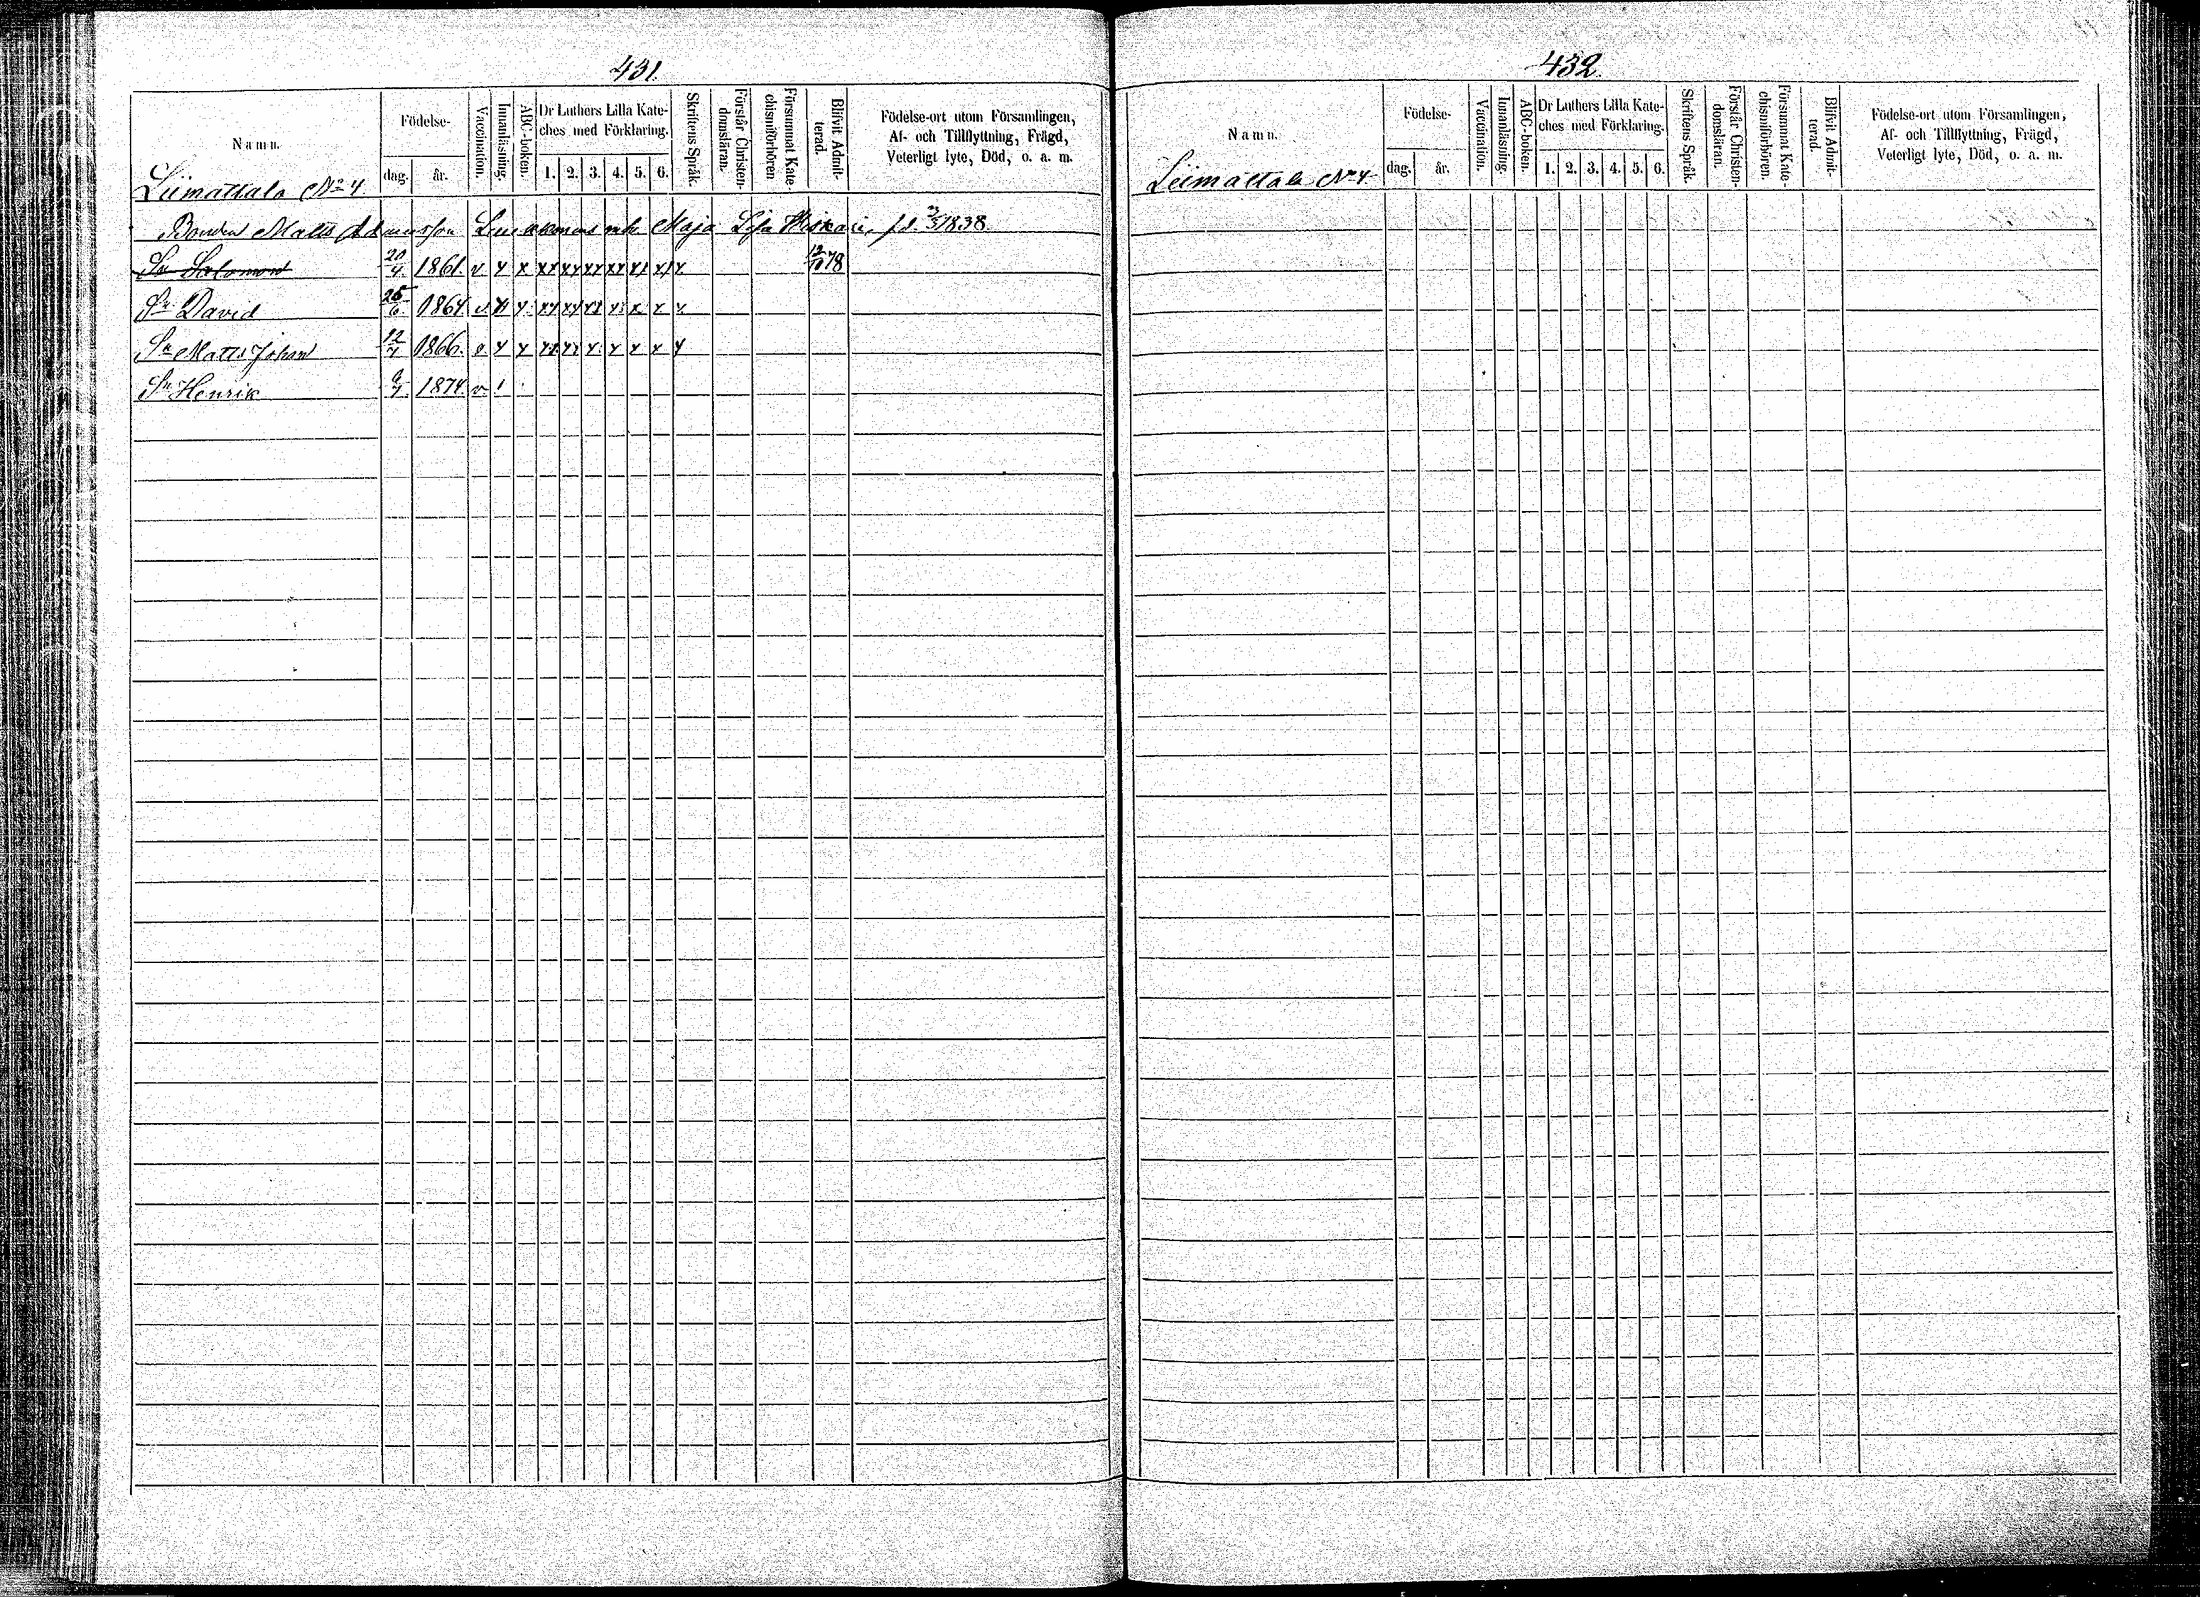 431.
Namn.
Födelse-
dag. år.
Vaccination.
Innanläsning.
ABC-boken.
Dr Luthers Lilla Kate-
ches med Förklaring.
1. 2. 3. 4. 5. 6.
Skriftens Språk.
Förstår Christen-
domsläran.
Försummat Kate-
chismiförhören
Blifvit Admit-
terad.
Födelse-ort utom Församlingen,
Af- och Tillflyttning, Frägd,
Veterligt lyte, Död, o. a. m.
Liimattala No 4
Bonden Matts Adamsson mh Maja Lisa f.d. 1838.
Sn Salomon 20/4 1861. v x x xx xx xx xx xx x 12/10 78
Sn David 25/6 1864. v x x
Sn Matts Johan 12/4 1866. v x x
Sn Henrik 1874. v
432.
Namn.
Födelse-
dag. år.
Vaccination.
Innanläsning.
ABC-boken.
Dr Luthers Lilla Kate-
ches med Förklaring.
1. 2. 3. 4. 5. 6.
Skriftens Språk.
Förstår Christen-
domsläran.
Försummat Kate-
chismiförhören.
Blifvit Admit-
terad.
Födelse-ort utom Församlingen,
Af- och Tillflyttning, Frägd,
Veterligt lyte, Död, o. a. m.
Liimattala No 4.